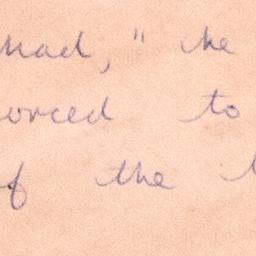 had," he
orced to
of the